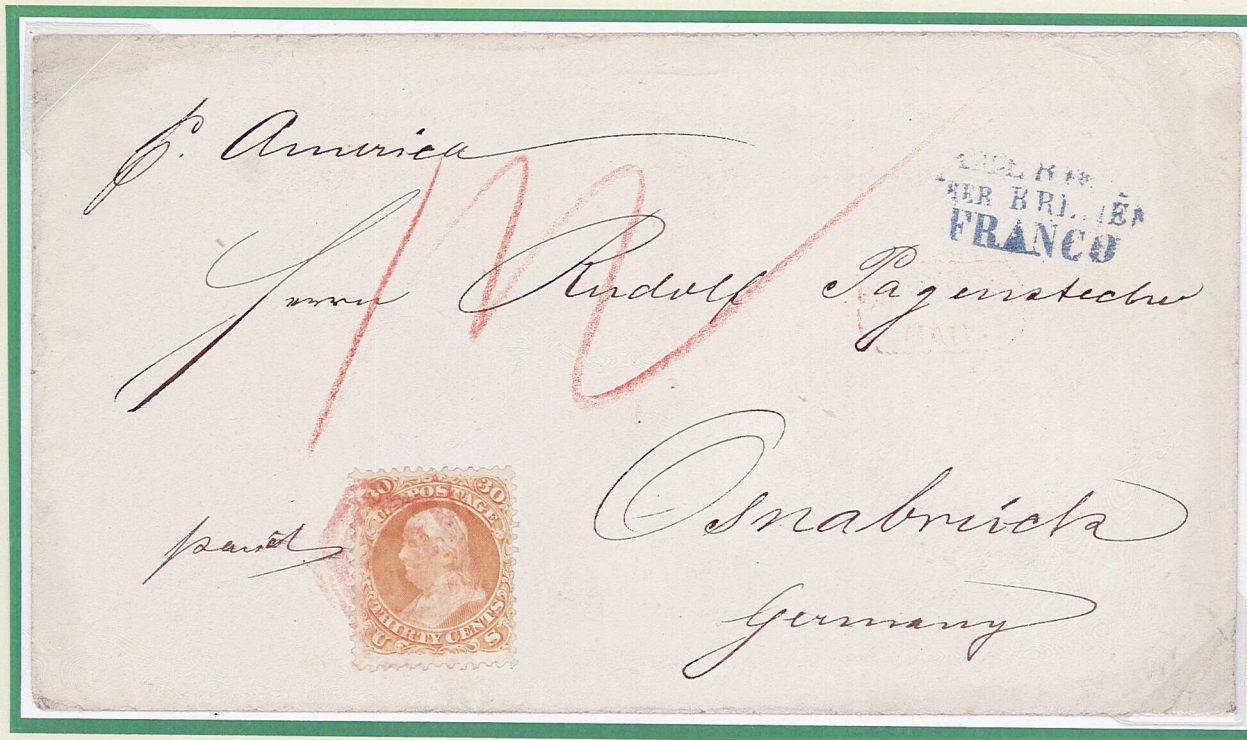 p. America
BREMEN
FRANCO
Herrn Rudolf Pagenstecher
Osnabrück
Germany
paid
30 30
U.S. POSTAGE
THIRTY CENTS
U S